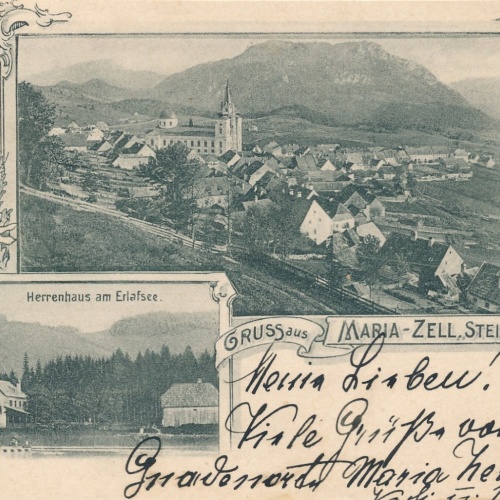 Herrenhaus am Erlafsee.
GRUSS aus MARIA-ZELL, STEI
Meine Lieben!
Viele Grüße vo
Gnadenorte Maria Ze